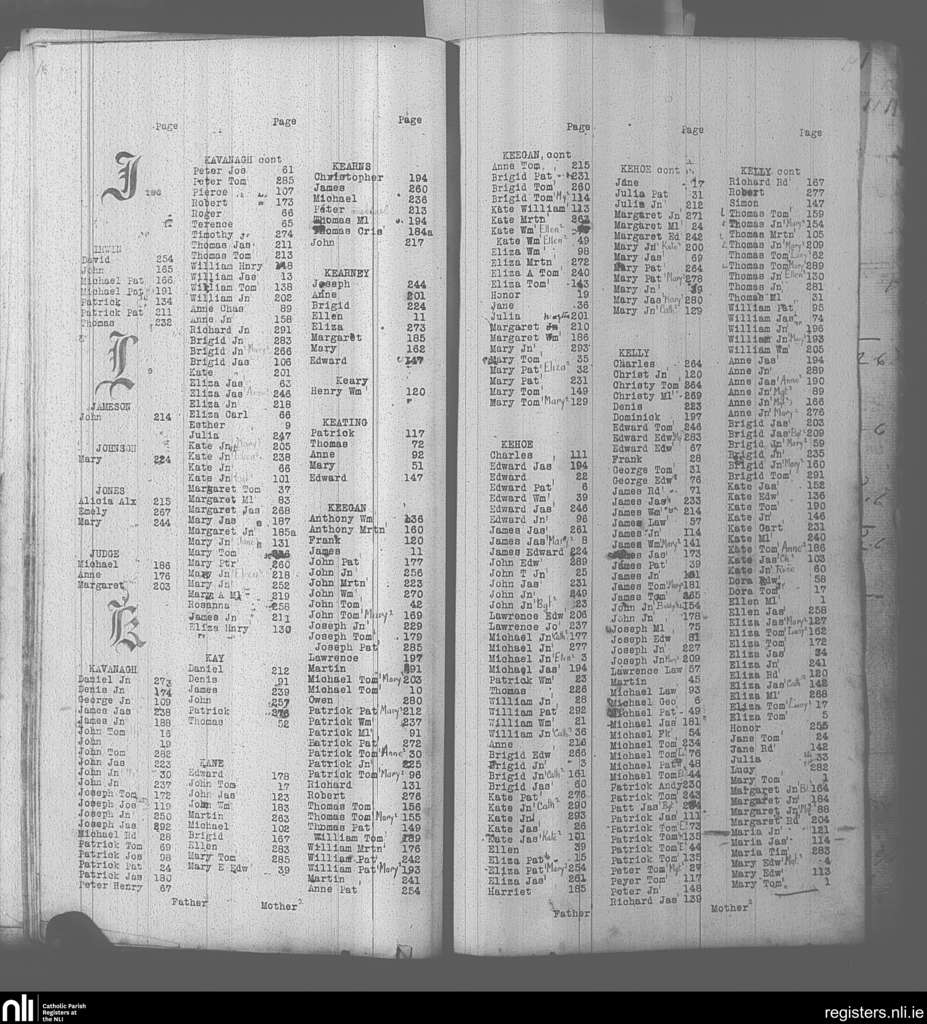 Page
I
IRWIN
David 254
John 165
Michael Pat 166
Michael Pat 191
Patrick 134
Patrick Pat 211
Thomas 232
JAMESON
John 214
JOHNSON
Mary 224
JONES
Alicia Alx 215
Emely 267
Mary 244
JUDGE
Michael 186
Anne 176
Margaret 203
K
KAVANAGH
Daniel Jn 273
Denis Jn 174
George Jn 109
James Jas 238
James Jn 188
John Tom 16
John 19
John Tom 282
John Jas 223
John Jn 30
John Jn 237
Joseph Tom 172
Joseph Jos 119
Joseph Jn 250
Joseph Jas 292
Michael Rd 28
Patrick Tom 69
Patrick Jos 98
Patrick Pat 24
Patrick Jas 180
Peter Henry 67
Father
Page
KAVANAGH cont
Peter Jos 61
Peter Tom 285
Pierce 107
Robert 173
Roger 66
Terence 65
Timothy 274
Thomas Jas 211
Thomas Tom 213
William Hnry
William Jas 13
William Tom 138
William Jn 202
Anne Chas 89
Anne Jn 158
Richard Jn 291
Brigid Jn 283
Brigid Jn 266
Brigid Jas 106
Kate 201
Eliza Jas 63
Eliza Jas 246
Eliza Jn 218
Eliza Carl 66
Esther 9
Julia 247
Kate Jn 205
Kate Jn 238
Kate Jn 66
Kate Jn 101
Margaret Tom 37
Margaret Ml 83
Margaret Jas 268
Mary Jas 187
Margaret Jn 185a
Mary Jn 131
Mary Tom
Mary Ptr 260
Mary Jn 218
Mary Jn 252
Mary A Ml 219
Rosanna 258
James Jn 211
Eliza Hnry 130
KAY
Daniel 212
Denis 91
James 239
John 257
Patrick 276
Thomas 52
KANE
Edward 178
John Tom 17
John Jas 123
John Wm 183
Martin 263
Michael 102
Brigid 167
Ellen 283
Mary Tom 285
Mary E Edw 39
Mother
Page
KEARNS
Christopher 194
James 260
Michael 236
Peter 213
Thomas Ml 194
Thomas Cris 184a
John 217
KEARNEY
Joseph 244
Anne 201
Brigid 224
Ellen 11
Eliza 273
Margaret 185
Mary 162
Edward 147
Keary
Henry Wm 120
KEATING
Patrick 117
Thomas 72
Anne 92
Mary 51
Edward 147
KEEGAN
Anthony Wm 136
Anthony Mrtn 160
Frank 120
James 11
John Pat 177
John Jn 256
John Mrtn 223
John Wm 270
John Tom 42
John Tom 169
Joseph Jn 229
Joseph Tom 179
Joseph Pat 285
Lawrence 197
Martin
Michael Tom Mary 203
Michael Tom 10
Owen 280
Patrick Pat Mary 212
Patrick Wm 237
Patrick Ml 91
Patrick Pat 272
Patrick Tom Anne 30
Patrick Jn 225
Patrick Tom Mary 96
Richard 131
Robert 276
Thomas Tom 156
Thomas Tom Mary 155
Thomas Pat 149
William Tom
William Mrtn 176
William Pat 242
William Pat Mary 193
Martin 241
Anne Pat 254
Page
KEEGAN, cont
Anne Tom 215
Brigid Pat 231
Brigid Tom 260
Brigid Tom My 114
Kate William 113
Kate Mrtn
Kate Wm Ellen
Kate Wm Ellen 49
Eliza Wm 98
Eliza Mrtn 272
Eliza A Tom 240
Eliza Tom 143
Honor 19
Jane 36
Julia 201
Margaret Jn 210
Margaret Wm 186
Mary Jn 293
Mary Tom 35
Mary Pat Eliza 32
Mary Pat 231
Mary Tom 149
Mary Tom Mary 129
KEHOE
Charles 111
Edward Jas 194
Edward 22
Edward Pat 6
Edward Wm 39
Edward Jas 246
Edward Jn 96
James Jas 261
James Jas Mary 8
James Edward 224
John Edw 289
John T Jn 25
John Jas 231
John Jn 249
John Jn Bgt 23
Lawrence Edw 206
Lawrence Jo 237
Michael Jn Cath 177
Michael Jn 277
Michael Jn 3
Michael Jas 194
Patrick Wm 23
Thomas 226
William Jn 28
William Pat 292
William Wm 21
William Jn Cath 36
Anne 216
Brigid Edw 286
Brigid Jn 3
Brigid Jn Cath 161
Brigid Jas 60
Kate Pat 276
Kate Jn Cath 290
Kate Jn 293
Kate Jas 26
Kate Jas Kate 131
Ellen 39
Eliza Pat 15
Eliza Pat Mary 254
Eliza Jas 261
Harriet 185
Father
Page
KEHOE cont
Jane 17
Julia Pat 31
Julia Jn 212
Margaret Jn 271
Margaret Ml 24
Margaret Ed 242
Mary Jn Kate 200
Mary Jas 69
Mary Pat 264
Mary Pat Mary 278
Mary Jn
Mary Jas Mary 280
Mary Jn Cath 129
KELLY
Charles 264
Christ Jn 120
Christy Tom 264
Christy Ml 269
Denis 223
Dominick 197
Edward Tom 246
Edward Edw My 283
Edward Edw 67
Frank 28
George Tom 31
George Edw 76
James Rd 71
James Jas 233
James Wm 214
James Law 57
James Jn 114
James Wm Mary 141
James Jas 173
James Pat 39
James Jn
James Tom Mary 181
James Tom 265
John Jn 154
John Jn 178
Joseph Ml 75
Joseph Edw
Joseph Jn 227
Joseph Jn Mary 209
Lawrence Law 57
Martin 45
Michael Law 93
Michael Geo 6
Michael Pat 49
Michael Jas 181
Michael Fk 54
Michael Tom 234
Michael Tom 76
Michael Pat 48
Michael Tom 44
Patrick Andy 230
Patrick Tom 243
Patt Jas Bgt
Patrick Jas 111
Patrick Tom 73
Patrick Tom 135
Patrick Tom 44
Patrick Tom 135
Peter Tom 27
Peyer Tom 117
Peter Jn 148
Richard Jas 139
Page
KELLY cont
Richard Rd 167
Robert 277
Simon 147
Thomas Tom 159
Thomas Jn Mary 154
Thomas Mrtn 105
Thomas Jn Mary 209
Thomas Tom Lucy 62
Thomas Tom Mary 289
Thomas Tom Ellen 130
Thomas Jn 281
Thomas Ml 31
William Pat 95
William Jas 74
William Jn 196
William Jn Mary 193
William Wm 205
Anne Jas 194
Anne Jn 289
Anne Jas Anne 190
Anne Jn Mgt 89
Anne Jn 166
Anne Jn Mary 276
Brigid Jas 203
Brigid Jas Bgt 209
Brigid Jn Mary 59
Brigid Jn 235
Brigid Jn Mary 160
Brigid Tom 291
Kate Jas 152
Kate Edw 136
Kate Tom 190
Kate Jn 146
Kate Gart 231
Kate Ml 240
Kate Tom Anne 186
Kate Jas 103
Kate Jn 60
Dora Edw 58
Dora Tom 17
Ellen Ml 1
Ellen Jas 258
Eliza Jas Mary 127
Eliza Tom Lucy 162
Eliza Tom 172
Eliza Jas
Eliza Jn 241
Eliza Rd 120
Eliza Jas Cath 142
Eliza Ml 268
Eliza Tom Lucy 17
Eliza Tom 5
Honor
Jane Tom 24
Jane Rd 142
Julia 33
Lucy 282
Mary Tom 1
Margaret Jn 164
Margaret Jn 184
Margaret Jn Mgt 88
Margaret Rd 204
Maria Jn 121
Maria Jas 114
Maria Tim 283
Mary Edw Mgt 4
Mary Edw 113
Mary Tom 1
Mother
nli
Catholic Parish
Registers at
the NLI
registers.nli.ie